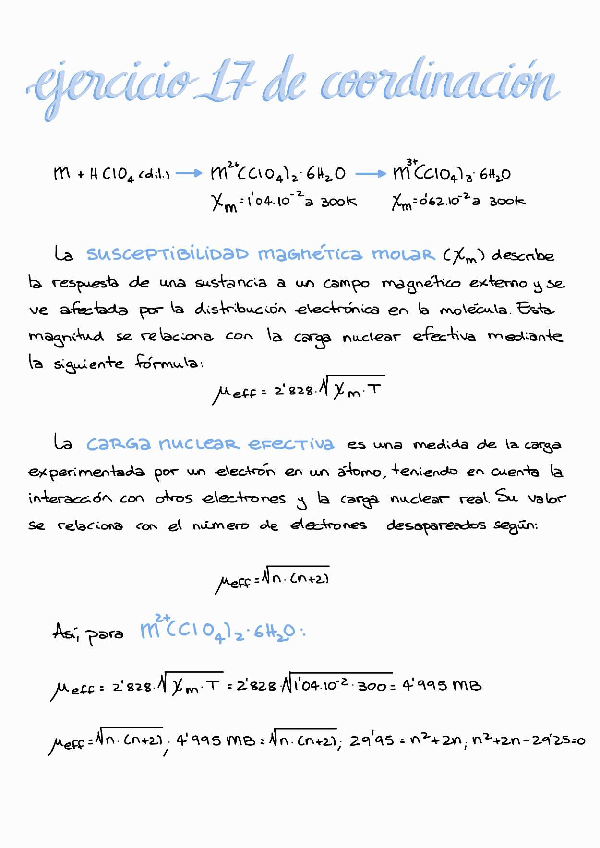 ejercicio 17 de coordinación
M + HClO₄ (dil.) → M²⁺(ClO₄)₂·6H₂O → M³⁺(ClO₄)₃·6H₂O
χm = 1'04·10⁻² a 300K χm = 0'62·10⁻² a 300K
La SUSCEPTIBILIDAD MAGNÉTICA MOLAR (χm) describe
la respuesta de una sustancia a un campo magnético externo y se
ve afectada por la distribución electrónica en la molécula. Esta
magnitud se relaciona con la carga nuclear efectiva mediante
la siguiente fórmula:
μeff = 2'828·√χm·T
La CARGA NUCLEAR EFECTIVA es una medida de la carga
experimentada por un electrón en un átomo, teniendo en cuenta la
interacción con otros electrones y la carga nuclear real. Su valor
se relaciona con el número de electrones desapareados según:
μeff = √n·(n+2)
Así, para M²⁺(ClO₄)₂·6H₂O:
μeff = 2'828·√χm·T = 2'828·√1'04·10⁻²·300 = 4'995 MB
μeff = √n·(n+2); 4'995 MB = √n·(n+2); 29'95 = n²+2n; n²+2n-29'25=0